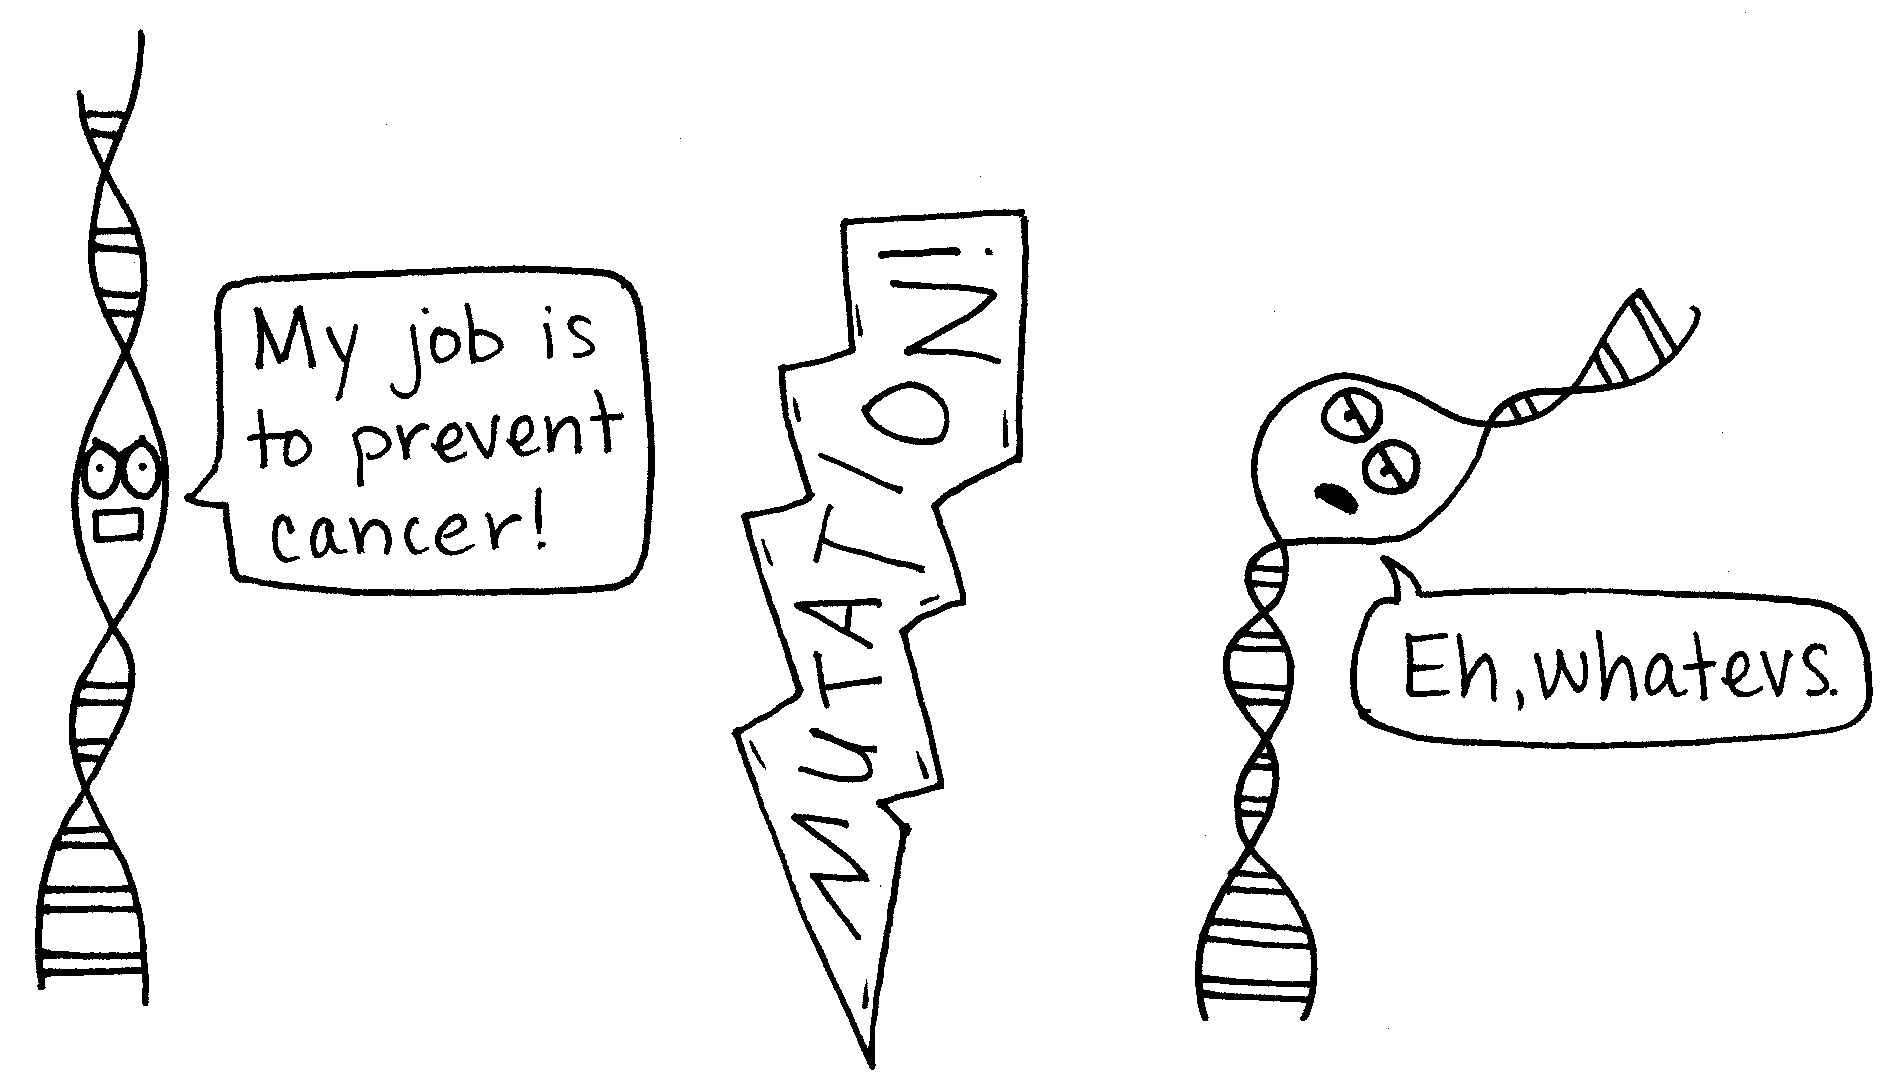 My job is
to prevent
cancer!
MUTATION!
Eh, whatevs.